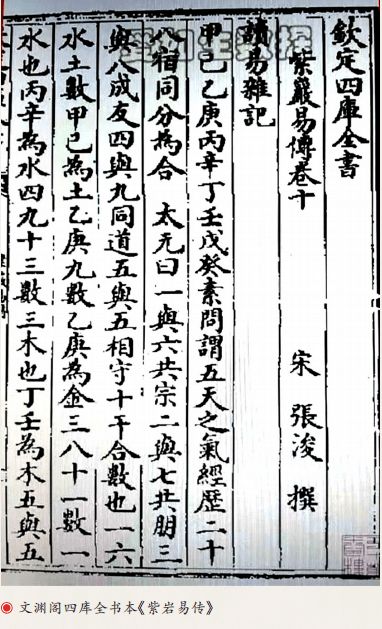 欽定四庫全書
紫巖易傳卷十
宋 張浚 撰
讀易雜記
甲己乙庚丙辛丁壬戊癸素問謂五天之氣經歷二十
八宿同分為合 太元曰一與六共宗二與七共朋三
與八成友四與九同道五與五相守十干合數也一六
水土數甲己為土乙庚九數乙庚為金三八十一數一
水也丙辛為水四九十三數三木也丁壬為木五與五
文渊阁四库全书本《紫岩易传》